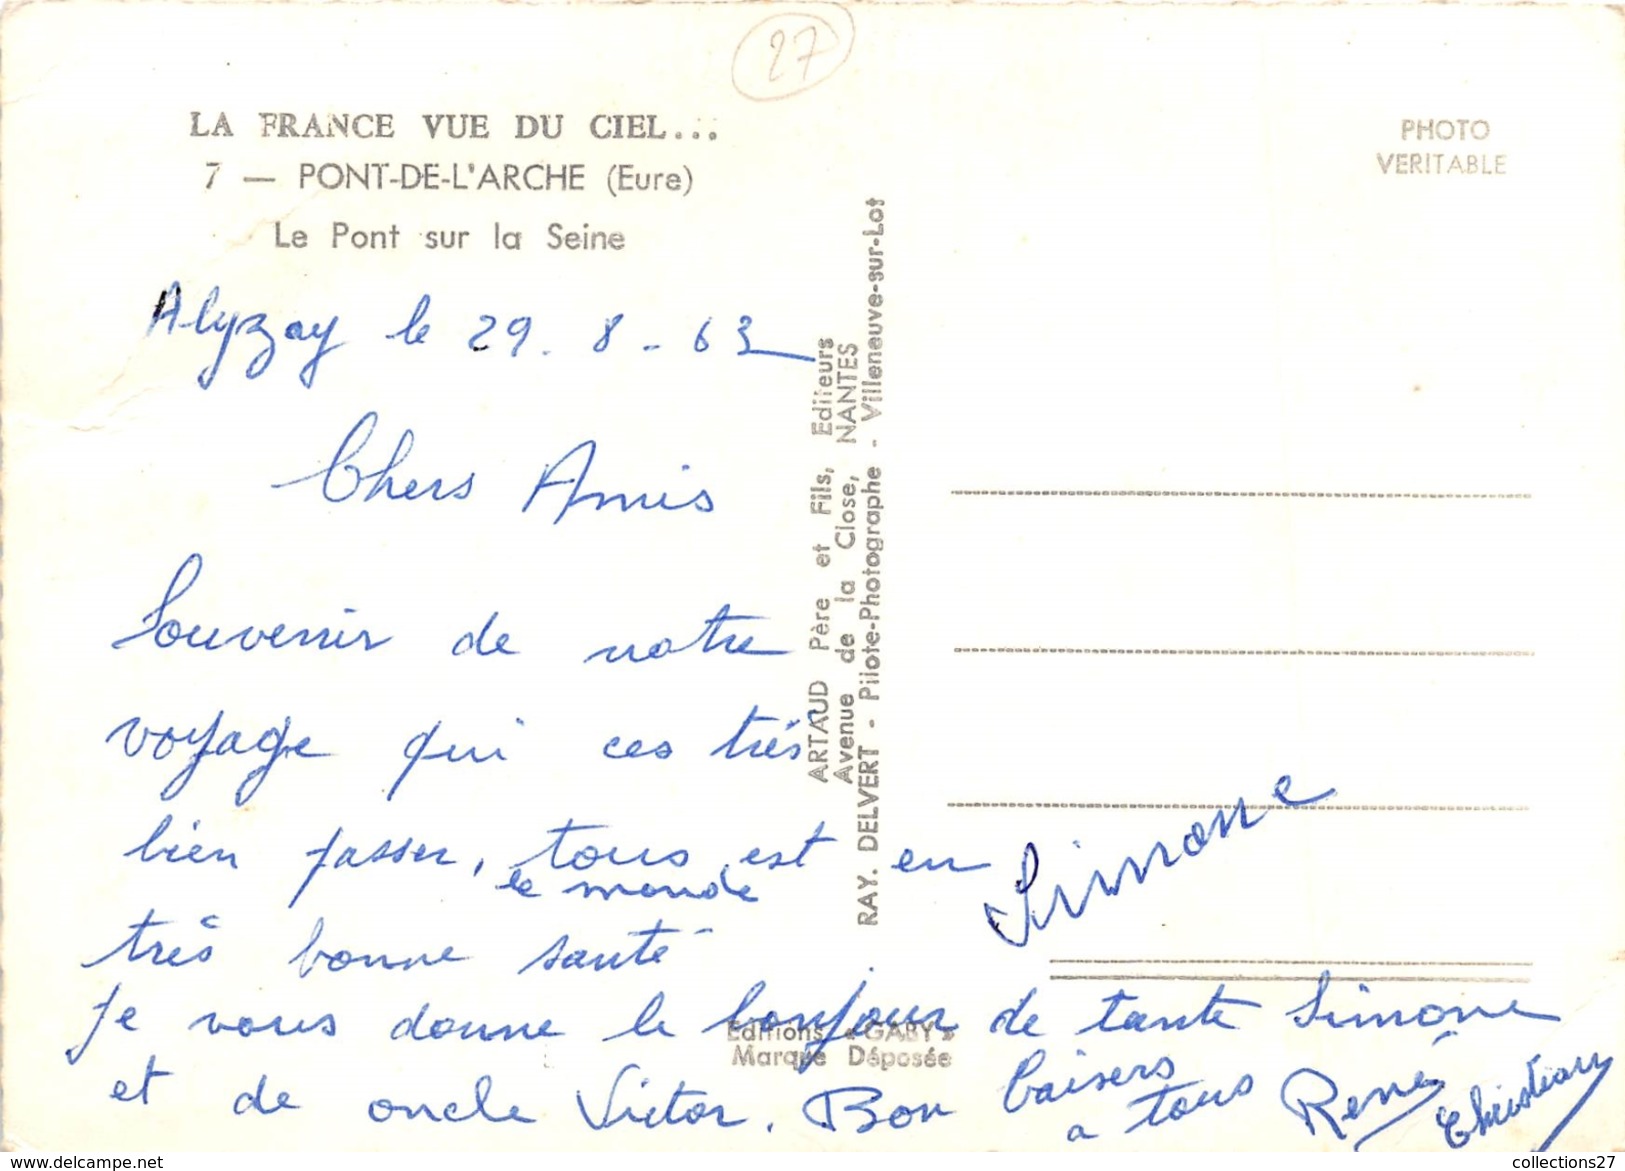 27
LA FRANCE VUE DU CIEL...
7 — PONT-DE-L'ARCHE (Eure)
Le Pont sur la Seine
PHOTO
VERITABLE
Alyzay le 29 - 8 - 63
Chers Amis
Souvenir de notre
voyage qui ces très
bien passer, tous est en
le monde
très bonne santé
Je vous donne le bonjour de tante Simone
et de oncle Victor. Bon baisers
a tous René
Christian
Simone
ARTAUD Père et Fils, Editeurs
Avenue de la Close, NANTES
RAY. DELVERT - Pilote-Photographe - Villeneuve-sur-Lot
Editions «GABY»
Marque Déposée
collections27